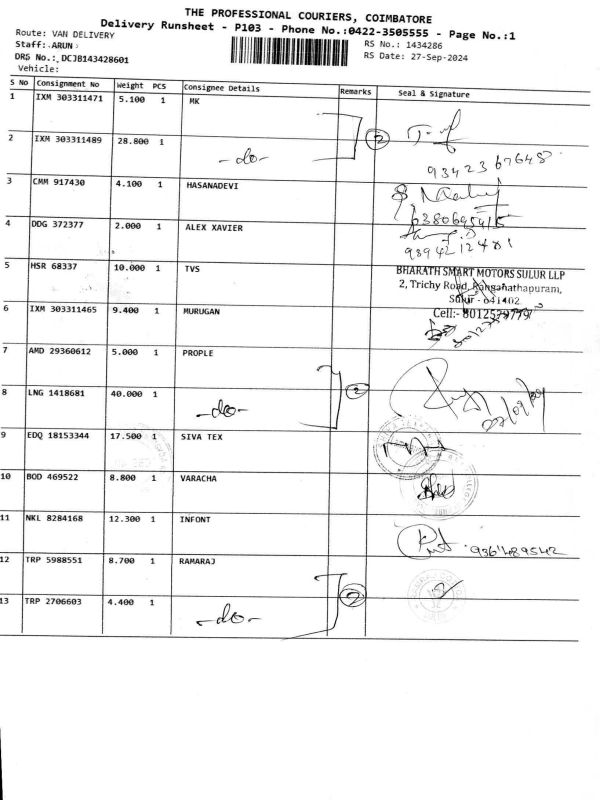 THE PROFESSIONAL COURIERS, COIMBATORE
Delivery Runsheet - P103 - Phone No.:0422-3505555 - Page No.:1
Route: VAN DELIVERY
Staff: ARUN
RS No.: 1434286
DRS No.: DCJB143428601
RS Date: 27-Sep-2024
Vehicle:
S No Consignment No Weight PCS Consignee Details Remarks Seal & Signature
1 IXM 303311471 5.100 1 MK
2 IXM 303311489 28.800 1 -do- 2
9342367648
3 CMM 917430 4.100 1 HASANADEVI
6380695415
4 DDG 372377 2.000 1 ALEX XAVIER
9894212401
5 HSR 68337 10.000 1 TVS
BHARATH SMART MOTORS SULUR LLP
2, Trichy Road, Ranganathapuram,
Sulur - 641402
Cell:- 8012579779
6 IXM 303311465 9.400 1 MURUGAN
7 AMD 29360612 5.000 1 PROPLE
8 LNG 1418681 40.000 1 -do- 2
9 EDQ 18153344 17.500 1 SIVA TEX
10 BOD 469522 8.800 1 VARACHA
11 NKL 8284168 12.300 1 INFONT
9361489542
12 TRP 5988551 8.700 1 RAMARAJ
13 TRP 2706603 4.400 1 -do- 2